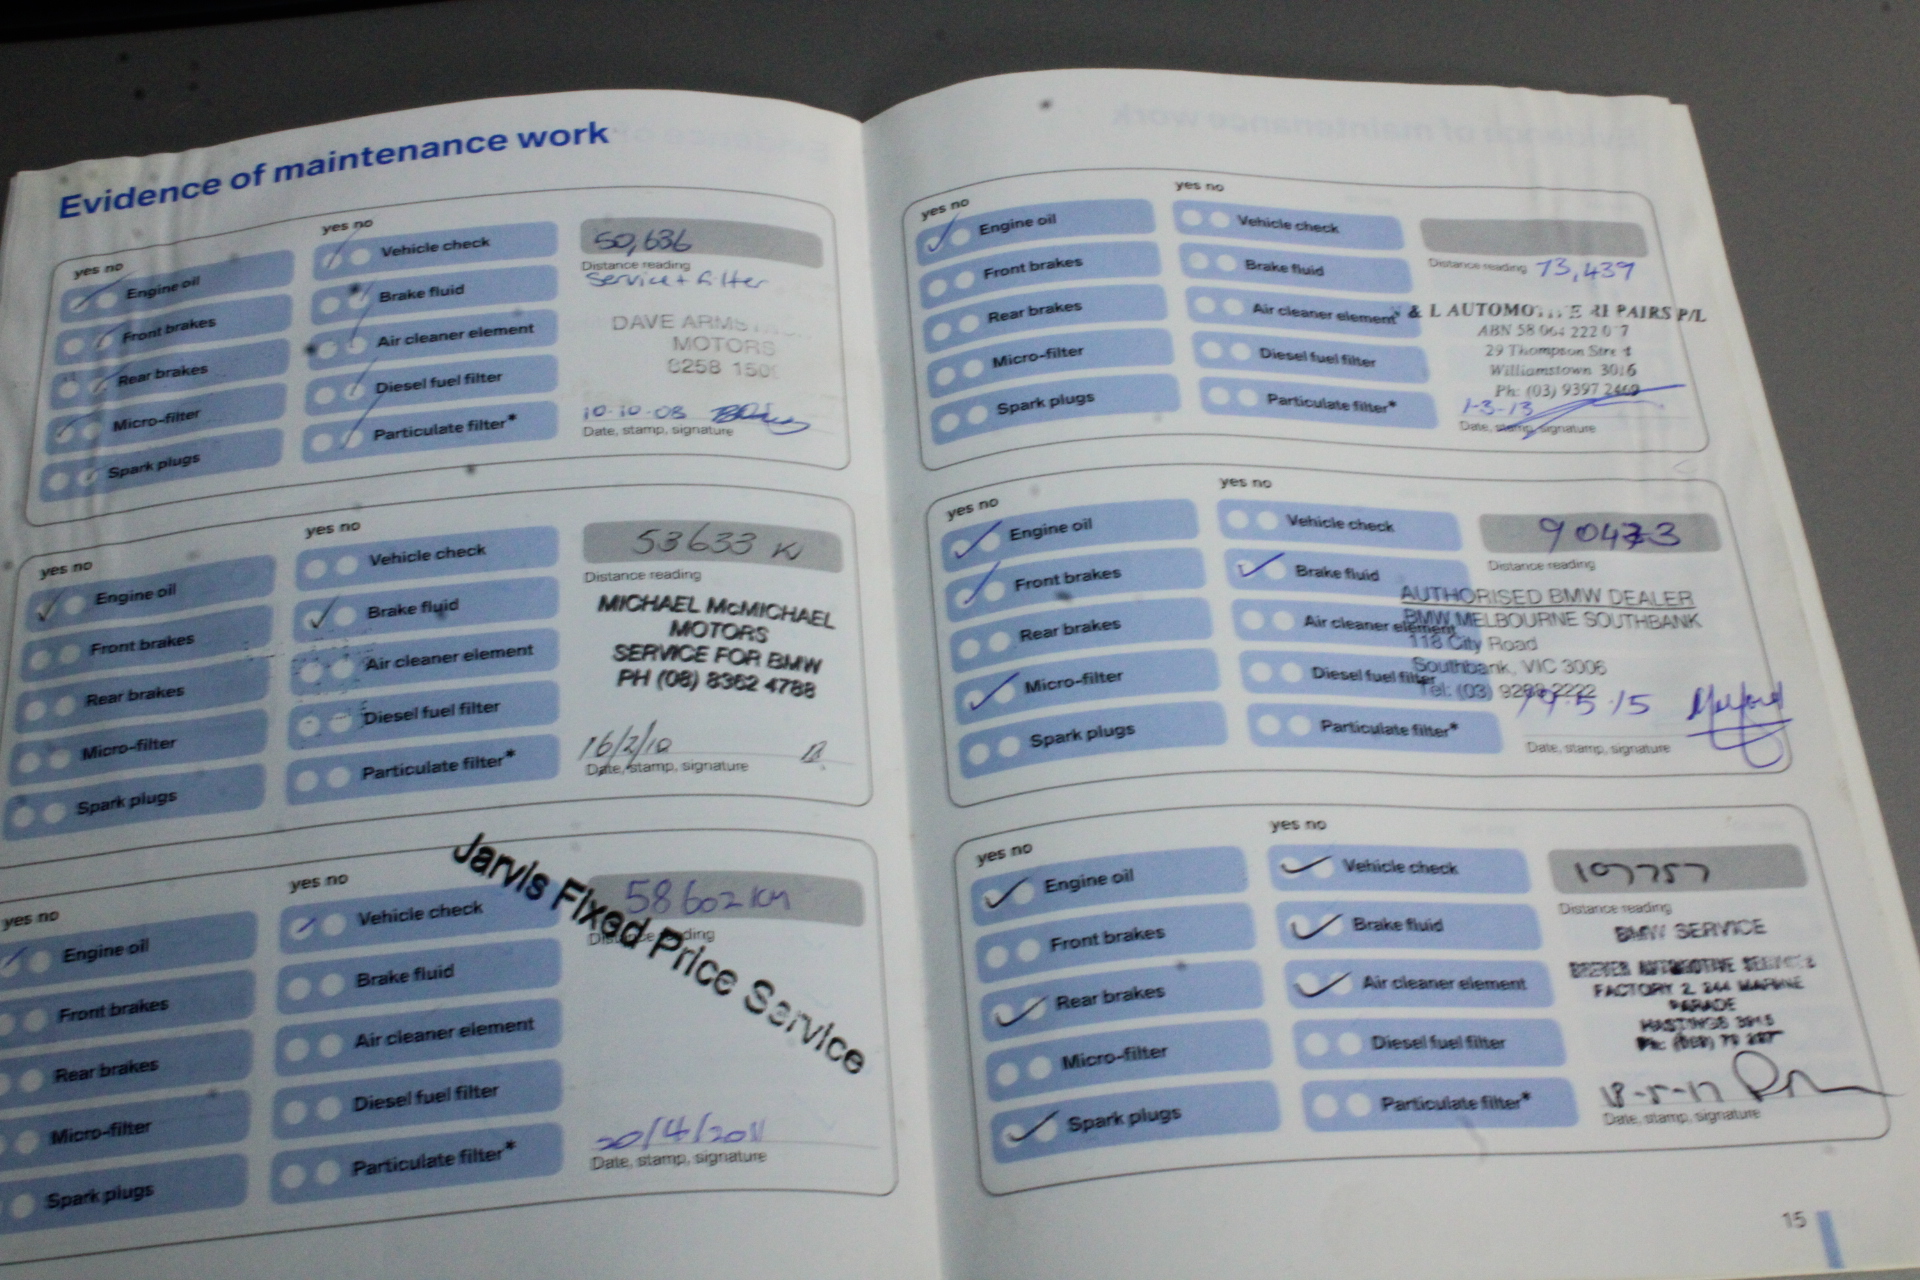 Evidence of maintenance work
yes no
yes no
Engine oil
Front brakes
Rear brakes
Micro-filter
Spark plugs
Vehicle check
Brake fluid
Air cleaner element
Diesel fuel filter
Particulate filter*
50,636
Distance reading
Service + filter
DAVE
MOTORS
8258
10·10·08
Date, stamp, signature
yes no
yes no
Engine oil
Front brakes
Rear brakes
Micro-filter
Spark plugs
Vehicle check
Brake fluid
Air cleaner element
Diesel fuel filter
Particulate filter*
53633
Distance reading
MICHAEL McMICHAEL
MOTORS
SERVICE FOR BMW
PH (08) 8362 4788
16/2/10
Date, stamp, signature
yes no
yes no
Engine oil
Front brakes
Rear brakes
Micro-filter
Spark plugs
Vehicle check
Brake fluid
Air cleaner element
Diesel fuel filter
Particulate filter*
58602 KM
Distance reading
Jarvis Fixed Price Service
20/4/2011
Date, stamp, signature
yes no
yes no
Engine oil
Front brakes
Rear brakes
Micro-filter
Spark plugs
Vehicle check
Brake fluid
Air cleaner element
Diesel fuel filter
Particulate filter*
Distance reading 73,439
& L P/L
ABN 58 064 222
29 Thompson
Williamstown 3016
Ph: (03) 9397 2469
1-3-13
Date, stamp, signature
yes no
yes no
Engine oil
Front brakes
Rear brakes
Micro-filter
Spark plugs
Vehicle check
Brake fluid
Air cleaner element
Diesel fuel filter
Particulate filter*
Distance reading
AUTHORISED BMW DEALER
BMW MELBOURNE SOUTHBANK
118 City Road
Southbank, VIC 3006
Tel: (03)
Date, stamp, signature
yes no
yes no
Engine oil
Front brakes
Rear brakes
Micro-filter
Spark plugs
Vehicle check
Brake fluid
Air cleaner element
Diesel fuel filter
Particulate filter*
107757
Distance reading
BMW SERVICE
AUTOMOTIVE
FACTORY 2, 244 MARINE
PARADE
HASTINGS 3915
18-5-17
Date, stamp, signature
15